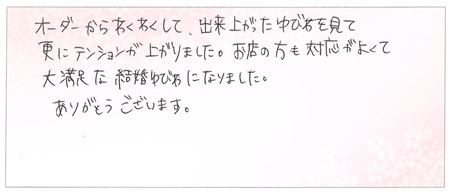 オーダーからわくわくして、出来上がったゆびわを見て
更にテンションが上がりました。お店の方も対応がよくて
大満足な結婚ゆびわになりました。
ありがとうございます。